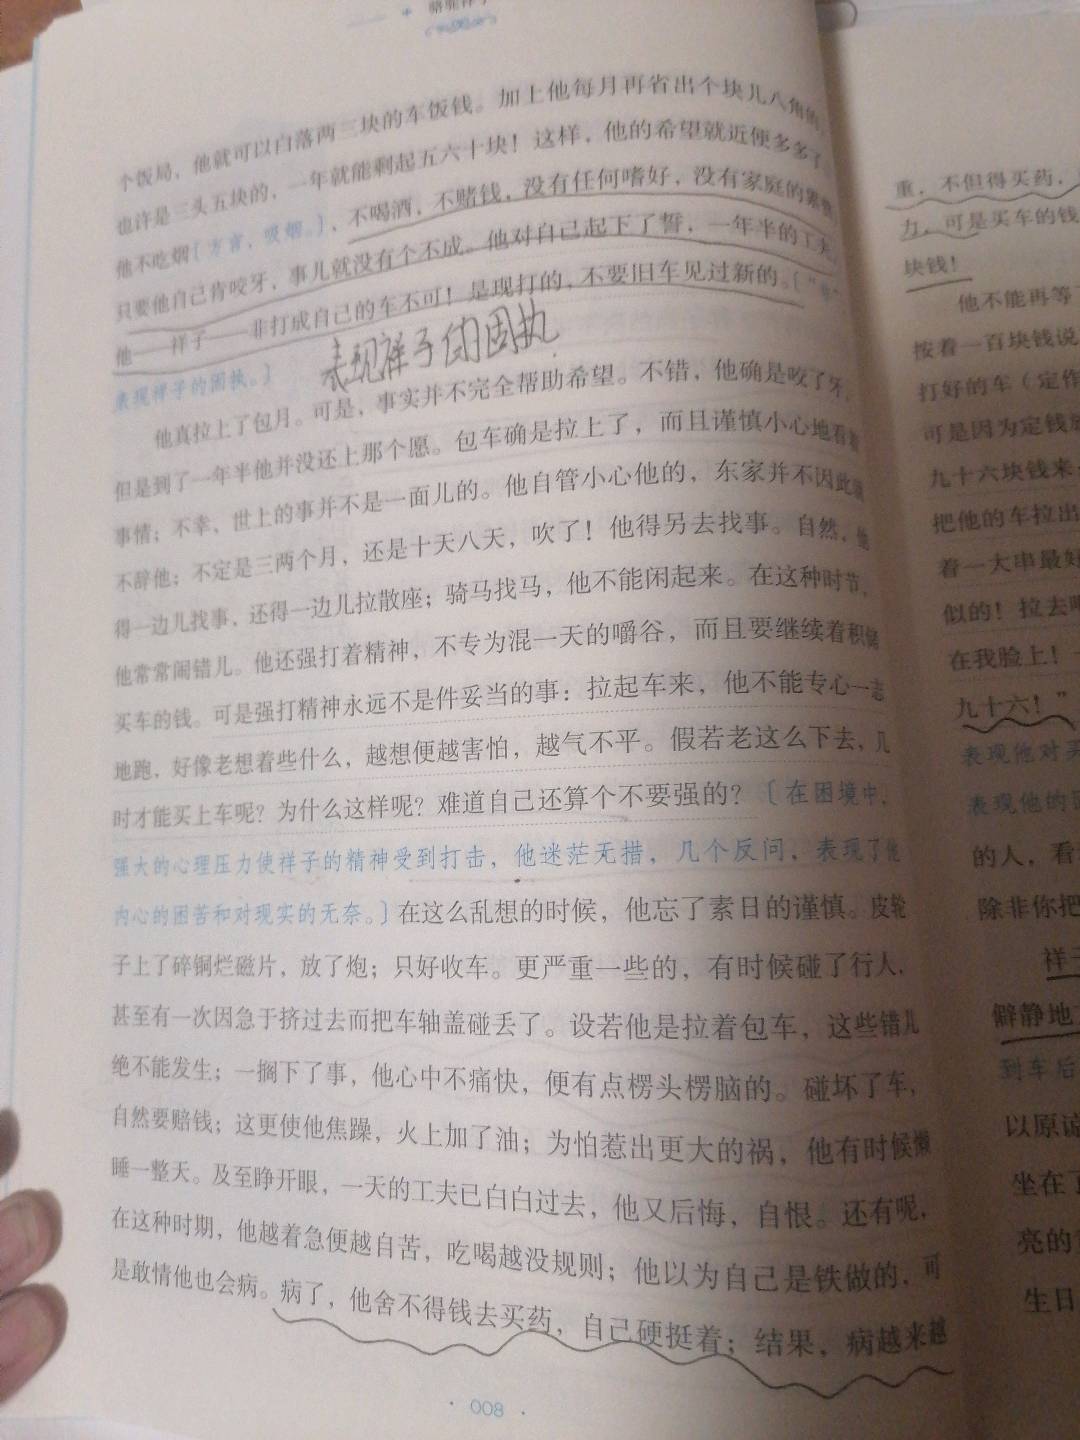 个饭局，他就可以白落两三块的车饭钱。加上他每月再省出个块儿八角的，
也许是三头五块的，一年就能剩起五六十块！这样，他的希望就近便多多了
他不吃烟〔方言，吸烟。〕，不喝酒，不赌钱，没有任何嗜好，没有家庭的累赘
只要他自己肯咬牙，事儿就没有个不成。他对自己起下了誓，一年半的工夫，
他——祥子——非打成自己的车不可！是现打的，不要旧车见过新的。〔
表现祥子的固执。〕
表现祥子的固执
他真拉上了包月。可是，事实并不完全帮助希望。不错，他确是咬了牙，
但是到了一年半他并没还上那个愿。包车确是拉上了，而且谨慎小心地看着
事情；不幸，世上的事并不是一面儿的。他自管小心他的，东家并不因此就
不辞他；不定是三两个月，还是十天八天，吹了！他得另去找事。自然，他
得一边儿找事，还得一边儿拉散座；骑马找马，他不能闲起来。在这种时节，
他常常闹错儿。他还强打着精神，不专为混一天的嚼谷，而且要继续着积储
买车的钱。可是强打精神永远不是件妥当的事：拉起车来，他不能专心一志
地跑，好像老想着些什么，越想便越害怕，越气不平。假若老这么下去，几
时才能买上车呢？为什么这样呢？难道自己还算个不要强的？〔在困境中，
强大的心理压力使祥子的精神受到打击，他迷茫无措，几个反问，表现了他
内心的困苦和对现实的无奈。〕在这么乱想的时候，他忘了素日的谨慎。皮轮
子上了碎铜烂磁片，放了炮；只好收车。更严重一些的，有时候碰了行人，
甚至有一次因急于挤过去而把车轴盖碰丢了。设若他是拉着包车，这些错儿
绝不能发生；一搁下了事，他心中不痛快，便有点楞头楞脑的。碰坏了车，
自然要赔钱；这更使他焦躁，火上加了油；为怕惹出更大的祸，他有时候懒
睡一整天。及至睁开眼，一天的工夫已白白过去，他又后悔，自恨。还有呢，
在这种时期，他越着急便越自苦，吃喝越没规则；他以为自己是铁做的，可
是敢情他也会病。病了，他舍不得钱去买药，自己硬挺着；结果，病越来越
008
重，不但得买药，
力，可是买车的钱
块钱！
他不能再等
按着一百块钱说
打好的车（定作
可是因为定钱
九十六块钱来
把他的车拉出
着一大串最好
似的！拉去
在我脸上！
九十六！”
表现他对
表现他的
的人，看
除非你把
祥子
僻静地
到车后
以原谅
坐在了
亮的
生日